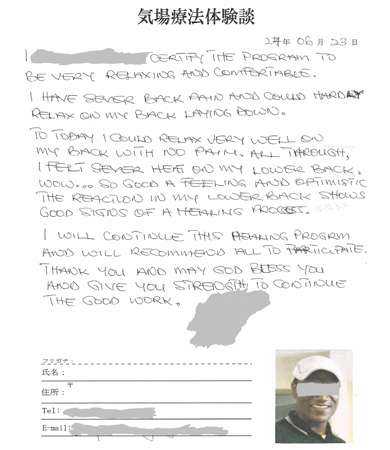 気場療法体験談
24年 06月 23日
I CERTIFY THE PROGRAM TO
BE VERY RELAXING AND COMFORTABLE.
I HAVE SEVER BACK PAIN AND COULD HARDLY
RELAX ON MY BACK LAYING DOWN.
TO TODAY I COULD RELAX VERY WELL ON
MY BACK WITH NO PAIN. ALL THROUGH,
I FELT SEVER HEAT ON MY LOWER BACK.
WOW... SO GOOD A FEELING AND OPTIMISTIC
THE REACTION IN MY LOWER BACK SHOWS
GOOD SIGNS OF A HEALING PROCESS.
I WILL CONTINUE THIS HEALING PROGRAM
AND WILL RECOMMEND ALL TO PARTICIPATE.
THANK YOU AND MAY GOD BLESS YOU
AND GIVE YOU STRENGTH TO CONTINUE
THE GOOD WORK.
フリガナ:
氏名:
住所: 〒
Tel:
E-mail: